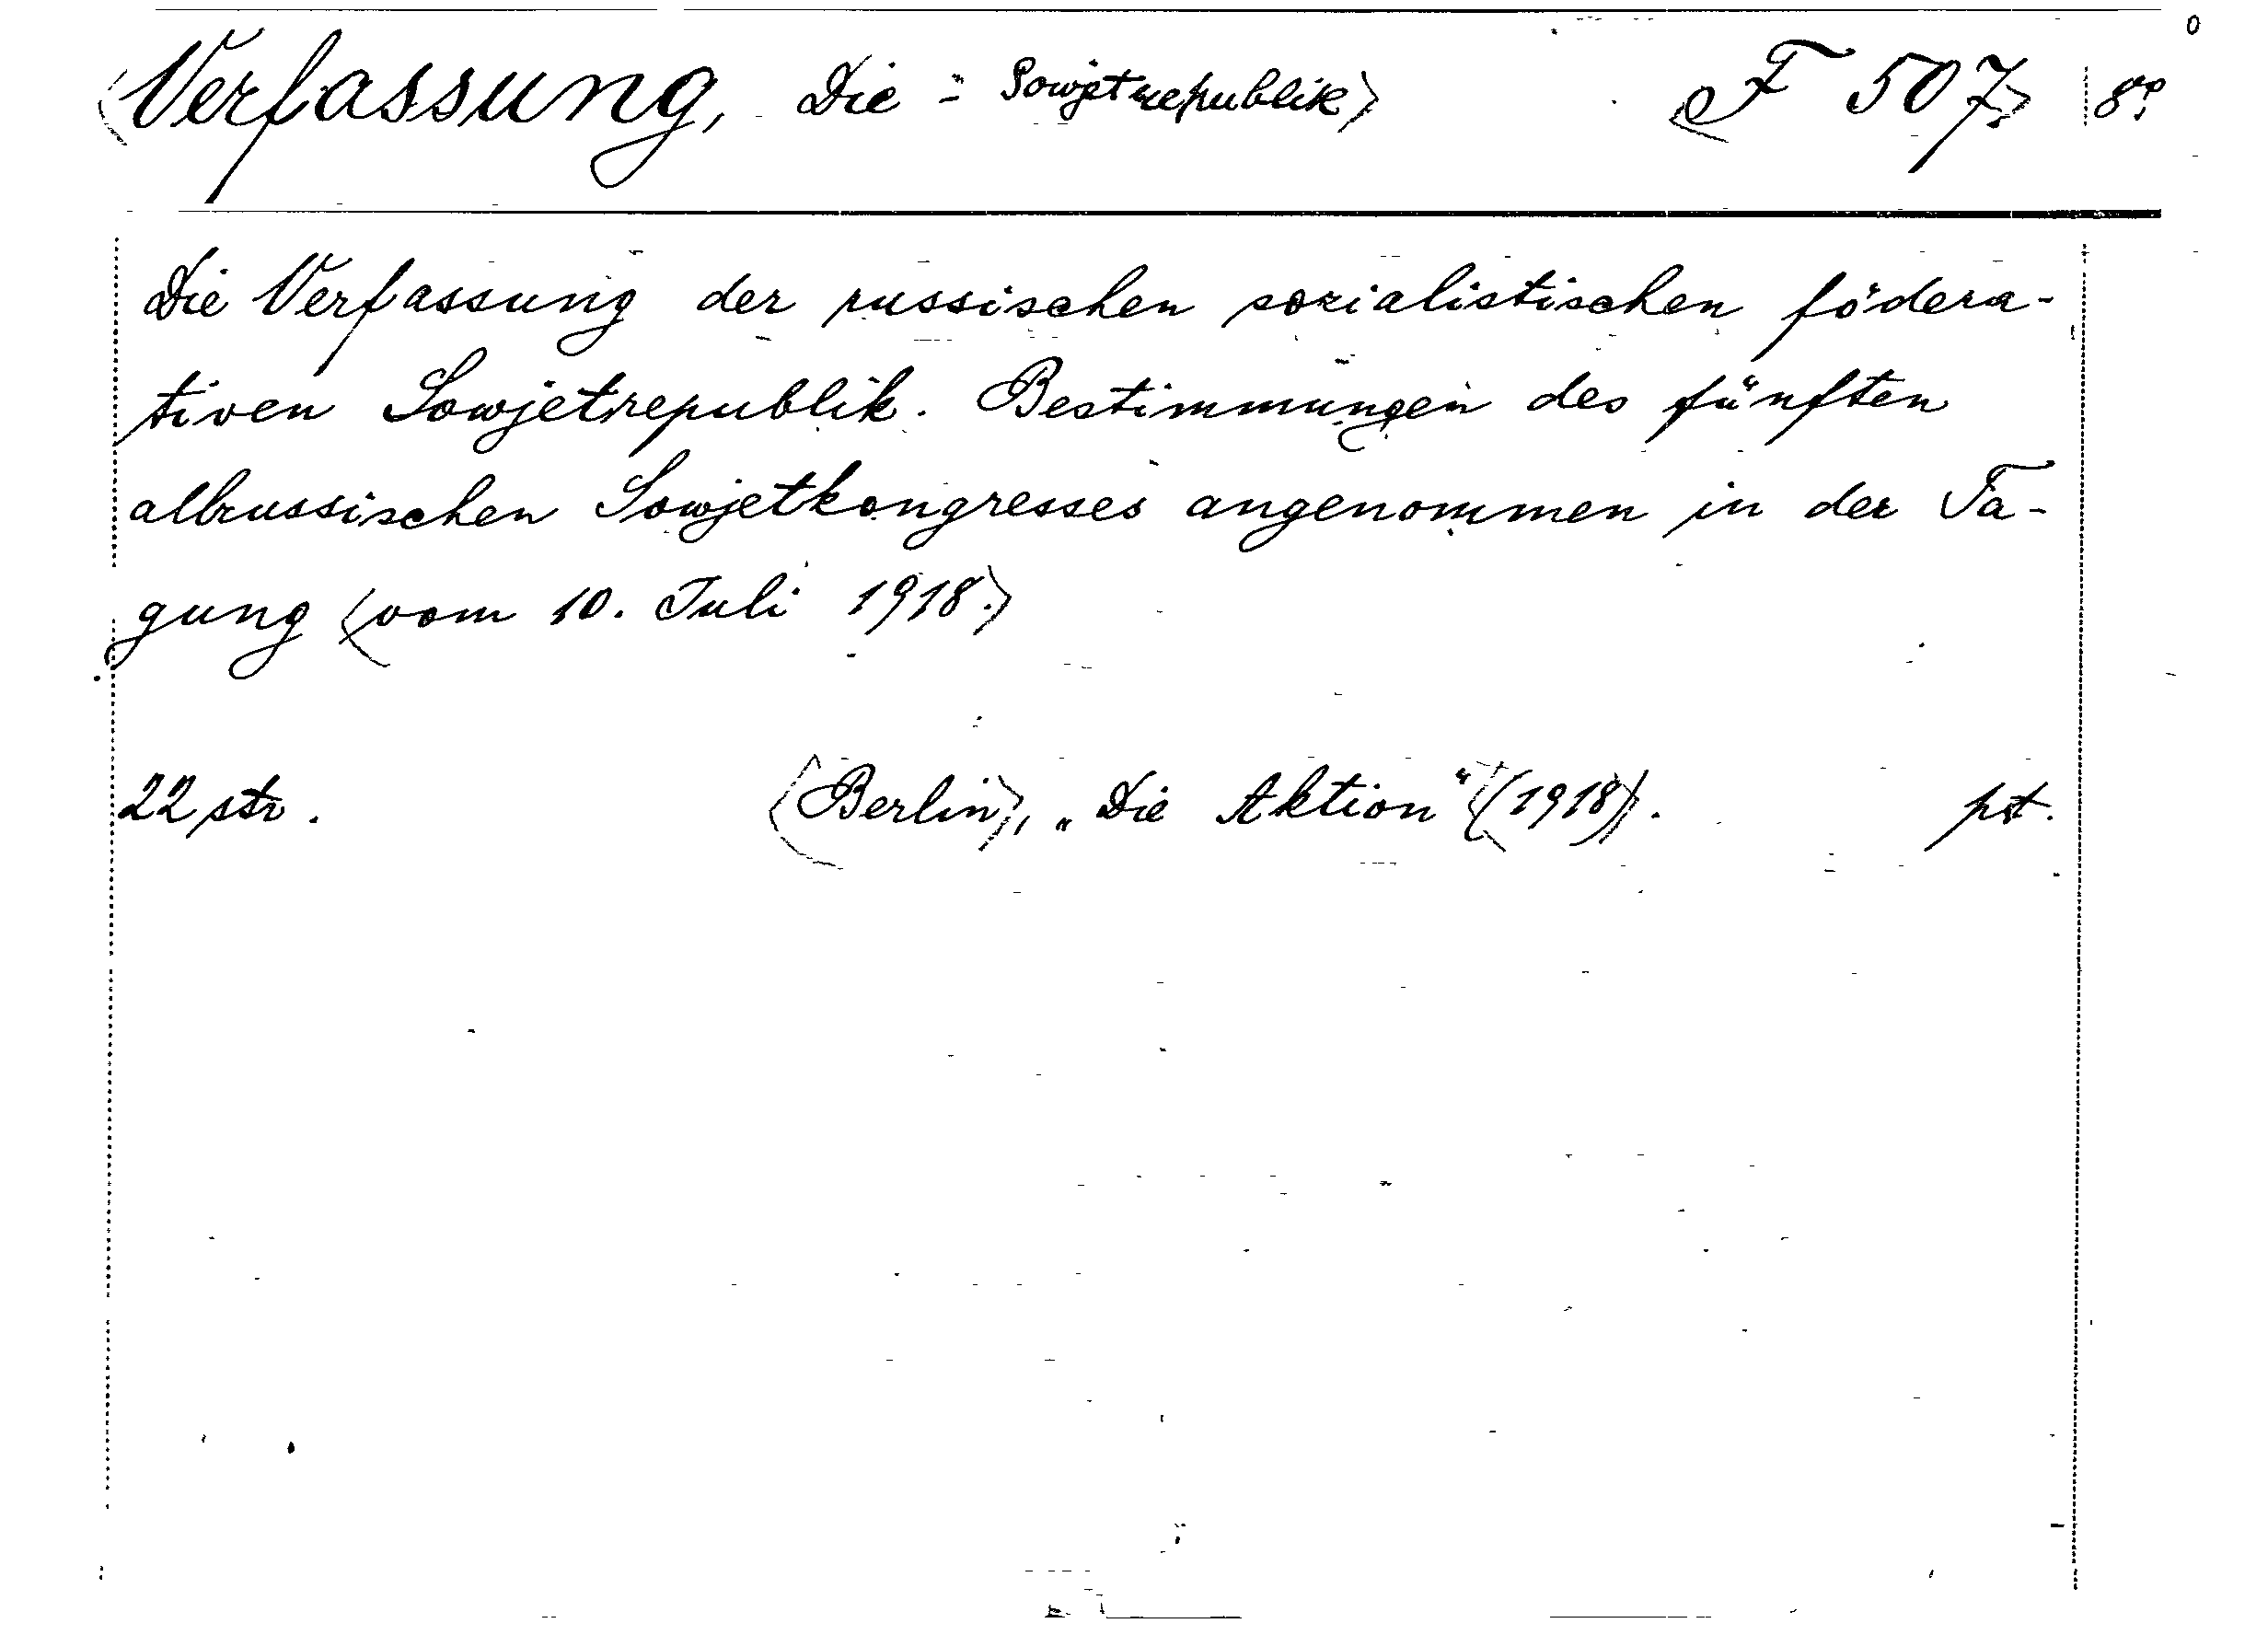 ⟨Verfassung, Die - Sowjetrepublik⟩ ⟨F 507⟩ 8°.
Die Verfassung der russischen sozialistischen födera-
tiven Sowjetrepublik. Bestimmungen des fünften
allrussischen Sowjetkongresses angenommen in der Ta-
gung ⟨vom 10. Juli 1918.⟩
22 str. ⟨Berlin⟩, „Die Aktion“ ⟨(1918)⟩. pt.